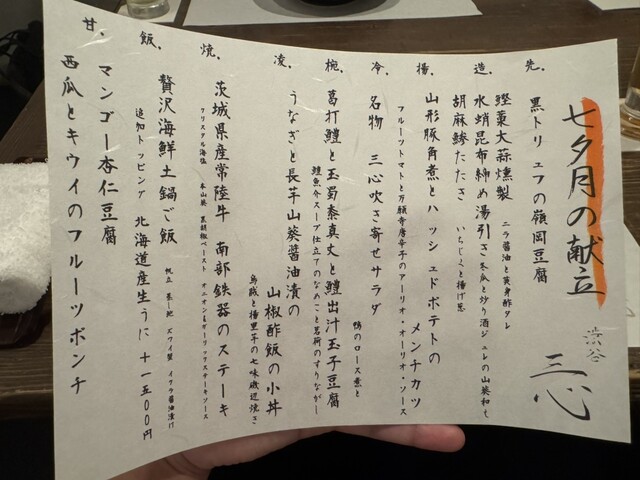 七夕月の献立
渋谷 三心
先、
黒トリュフの嶺岡豆腐
造、
鰹藁大蒜燻製 ニラ醤油と黄身酢タレ
水蛸昆布締め湯引き 冬瓜と炒り酒ジュレの山葵和え
胡麻鯵たたき いちじくと揚げ葱
揚、
山形豚角煮とハッシュドポテトのメンチカツ
フルーツトマトと万願寺唐辛子のアーリオ・オーリオ・ソース
冷、
名物 三心吹き寄せサラダ 鴨のロース煮と
椀、
葛打鱧と玉蜀黍真丈と鱧出汁玉子豆腐
鱧魚介スープ仕立てのなめこと茗荷のすりながし
凌、
うなぎと長芋山葵醤油漬の山椒酢飯の小丼
烏賊と揚里芋の七味磯辺焼き
焼、
茨城県産常陸牛 南部鉄器のステーキ
クリスタル海塩 本山葵 黒胡椒ペースト オニオン&ガーリックステーキソース
飯、
贅沢海鮮土鍋ご飯 帆立 蒸し鮑 ズワイ蟹 イクラ醤油漬け
追加トッピング 北海道産生うに 十一五〇〇円
甘、
マンゴー杏仁豆腐
西瓜とキウイのフルーツポンチ